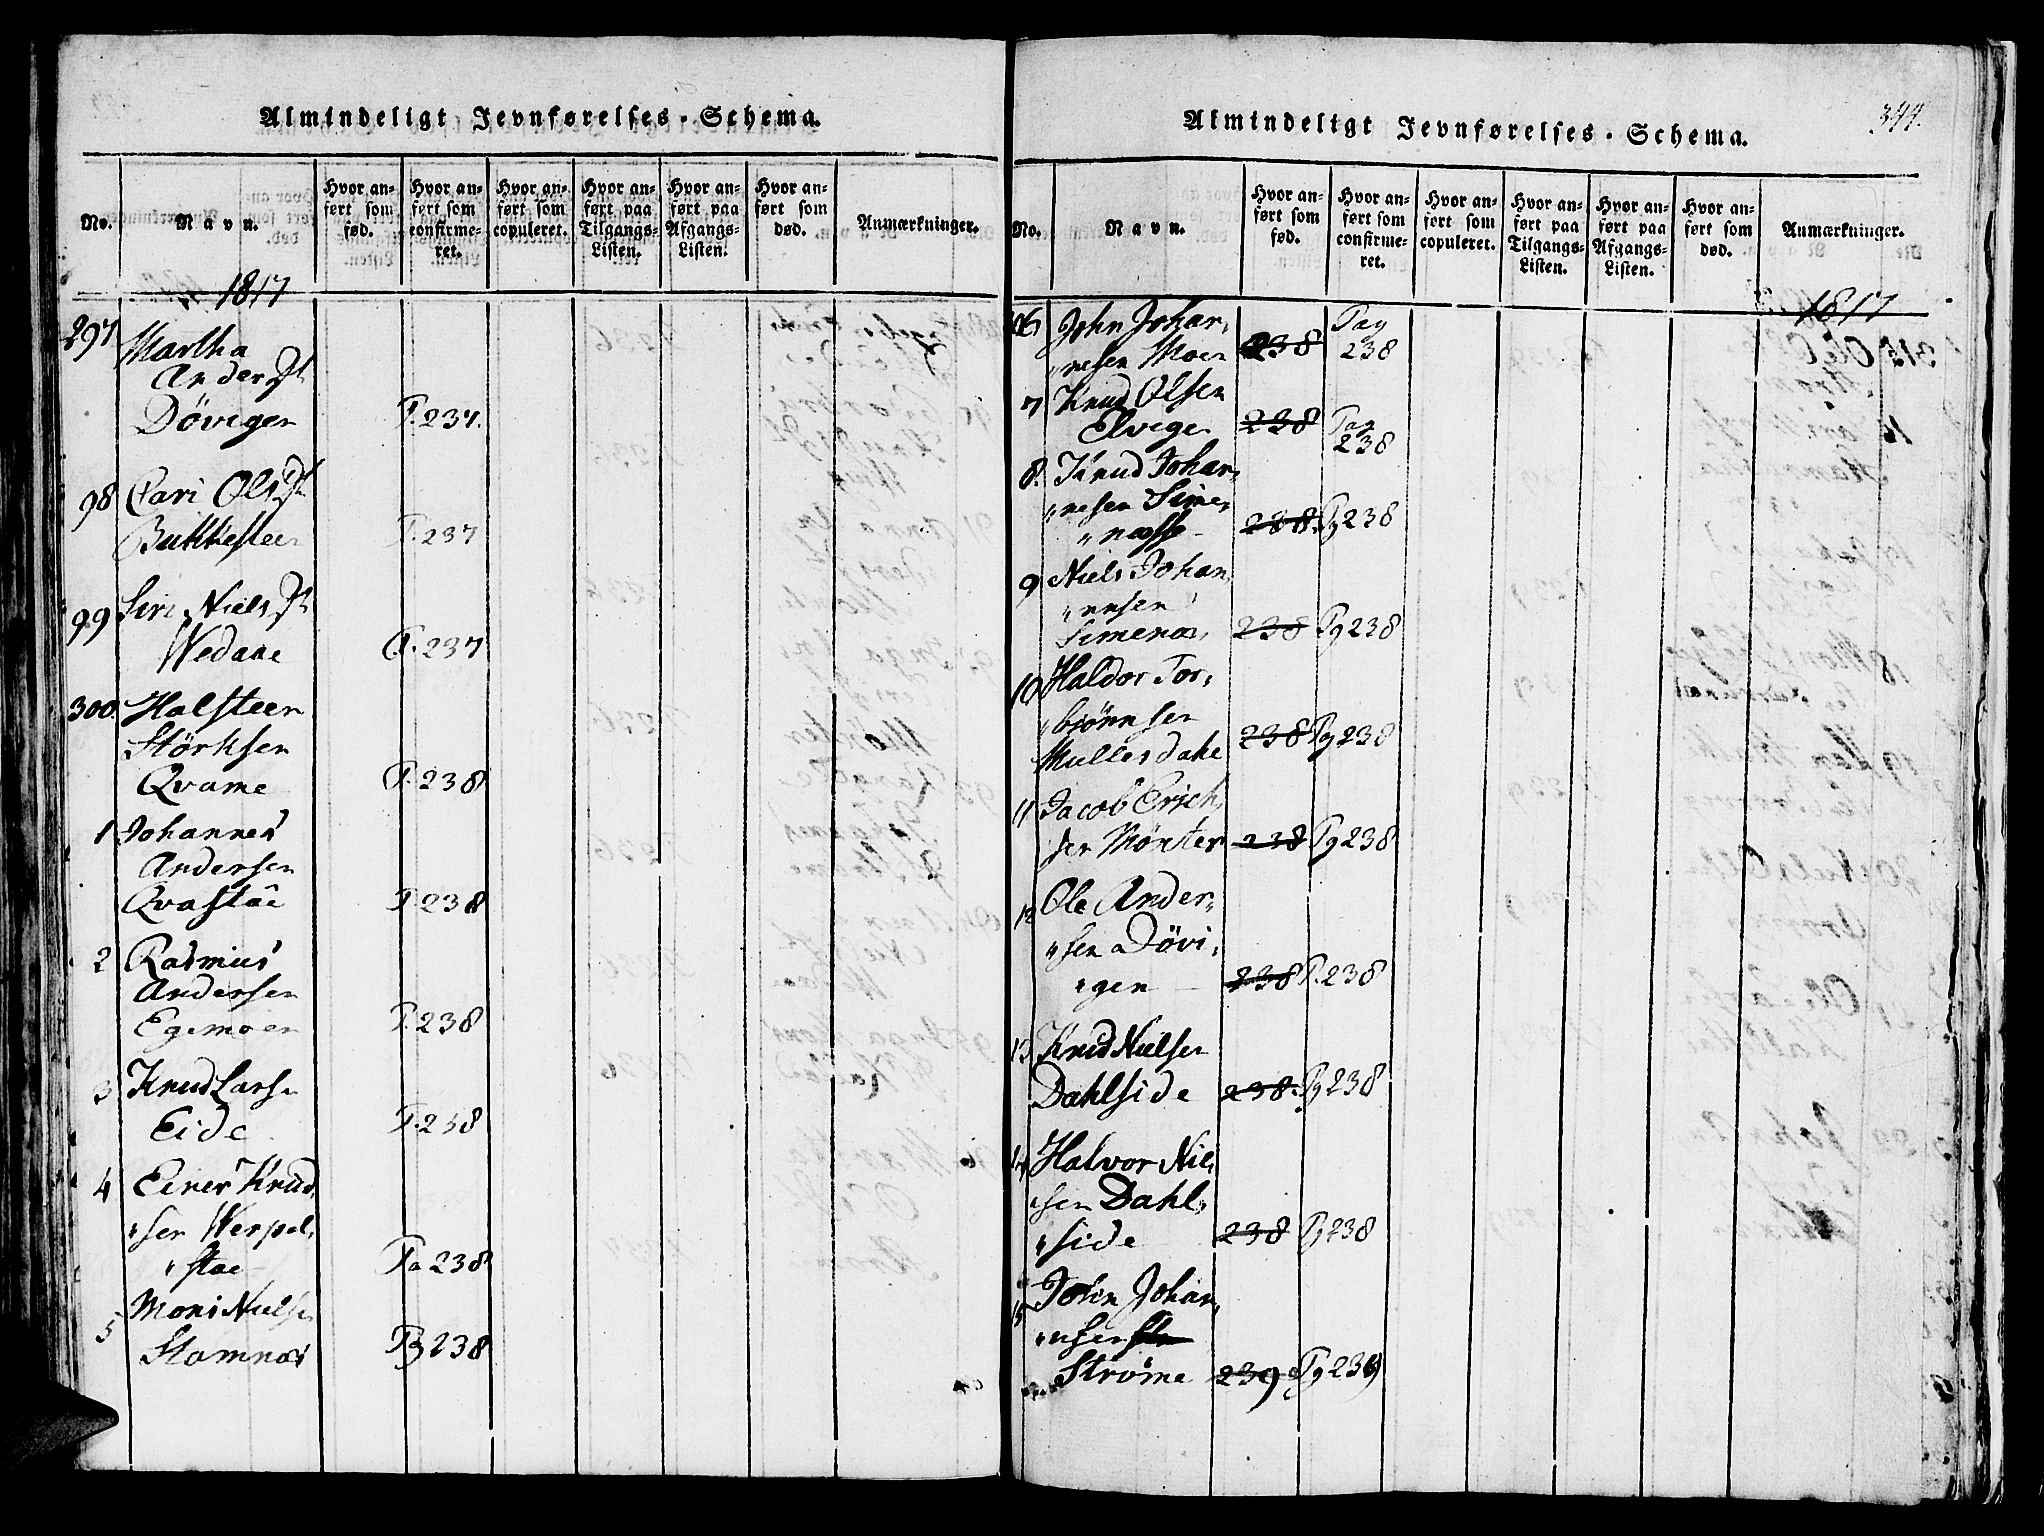 Almindeligt Jevnførelses-Schema.
No.
Navn.
Hvor an-
ført som
fød.
Hvor an-
ført som
confirme-
ret.
Hvor an-
ført som
copuleret.
Hvor an-
ført paa
Tilgangs-
Listen.
Hvor an-
ført paa
Afgangs-
Listen.
Hvor an-
ført som
død.
Anmærkninger.
1817
297 Martha
Andersdt
Dövigen P. 237.
98 Cari Olsdt
Bukkesteen P. 237
99 Siri Nielsdt
Wedaae P. 237
300. Halsteen
Störksen
Qvame P. 238
1 Johannes
Andersen
Qvastäe P. 238
2 Rasmus
Andersen
Egemoen P. 238
3 Knud Larse
Eide P. 238
4 Einer Knud,
"sen Werpel,
"stae Pa 238
5 Mons Nielse
Stamnæs Pg 238
Almindeligt Jevnførelses-Schema.
344.
No.
Navn.
Hvor an-
ført som
fød.
Hvor an-
ført som
confirme-
ret.
Hvor an-
ført som
copuleret.
Hvor an-
ført paa
Tilgangs-
Listen.
Hvor an-
ført paa
Afgangs-
Listen.
Hvor an-
ført som
død.
Anmærkninger.
1817
06 John Johan,
"nesen Moen 238 Pag 238
7 Knud Olsen
Elvegen 238 Pag 238
8. Knud Johan,
"nesen Sime,
"næsse 238. Pg 238
9 Niels Johan,
"nsen
Simenæs, 238 Pg 238
10 Haldor Tor,
"björnsen
Mullesdahe 238 Pg 238
11 Jacob Erich,
sen Mönster 238 Pg 238
12 Ole Ander,
"sen Dövi,
"gen 238 P. 238
13 Knud Nielsen
Dahlside 238. Pg 238
14 Halvor Niel
"sen Dahl,
"side 238 Pg 238
15 John Johan,
"nsen
Ströme 239 Pg 239